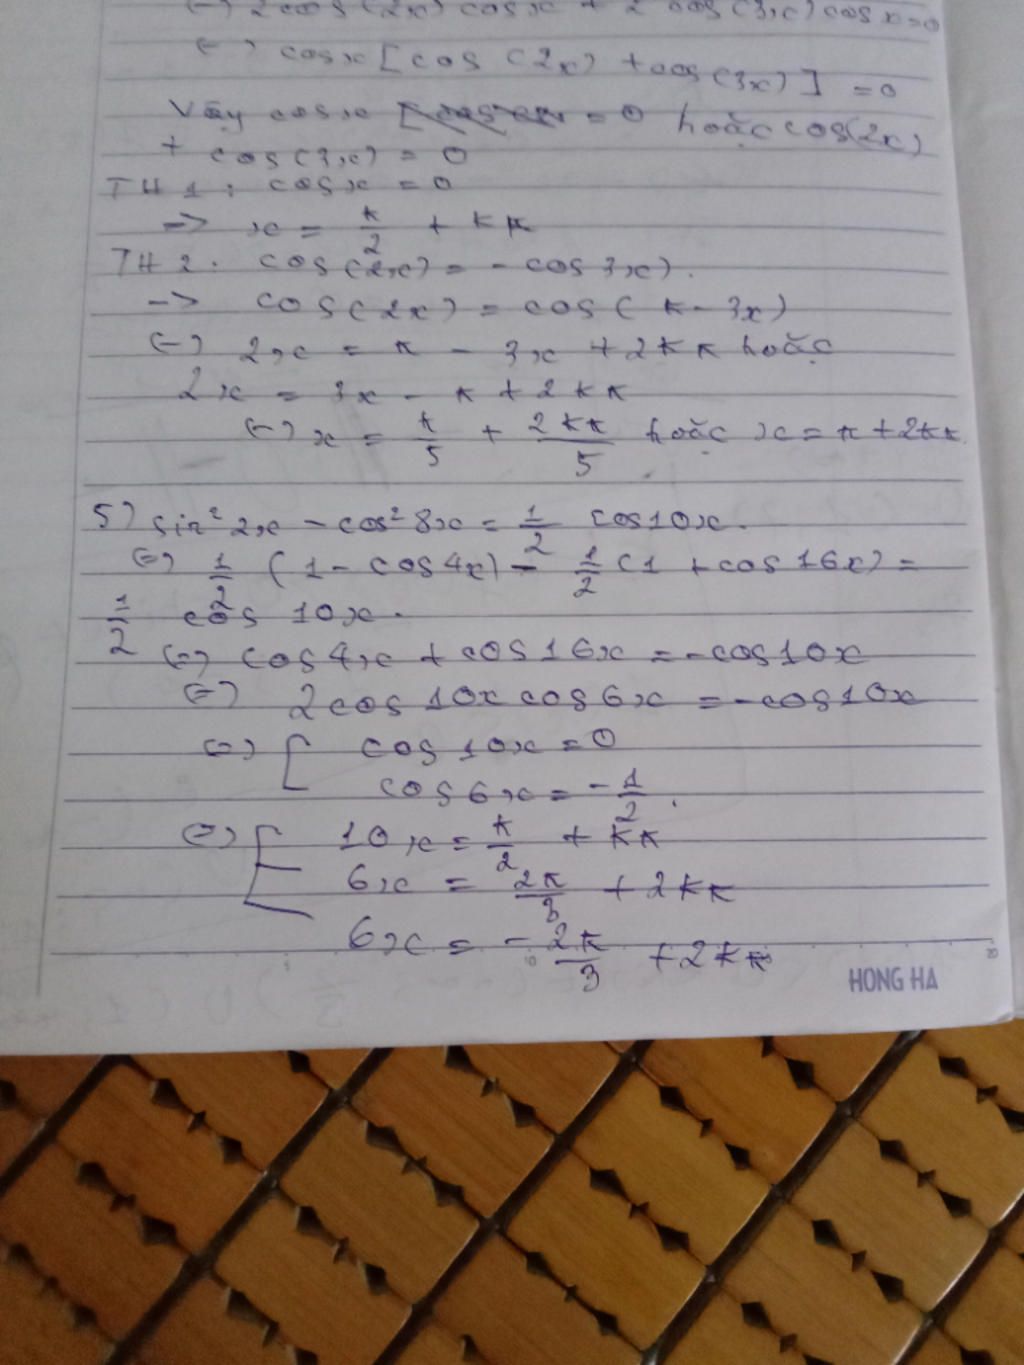 (=) 2cos(2x) cosx + 2 cos(3x) cosx=0
(=) cosx [cos (2x) + cos(3x)] = 0
Vậy cosx = 0 hoặc cos(2x)
+ cos(3x) = 0
TH1: cosx = 0
-> x = π/2 + kπ
TH2. cos(2x) = - cos3x).
-> cos(2x) = cos(π - 3x)
(=) 2x = π - 3x + 2kπ hoặc
2x = 3x - π + 2kπ
(=) x = π/5 + 2kπ/5 hoặc x = π + 2kπ
5) sin² 2x - cos² 8x = 1/2 cos10x.
(=) 1/2 (1 - cos4x) - 1/2 (1 + cos16x) =
1/2 cos 10x.
(=) cos4x + cos16x = -cos10x
(=) 2cos10x cos6x = -cos10x
(=) [ cos10x = 0
cos6x = -1/2.
(=) [ 10x = π/2 + kπ
6x = 2π/3 + 2kπ
6x = -2π/3 + 2kπ
HONG HA